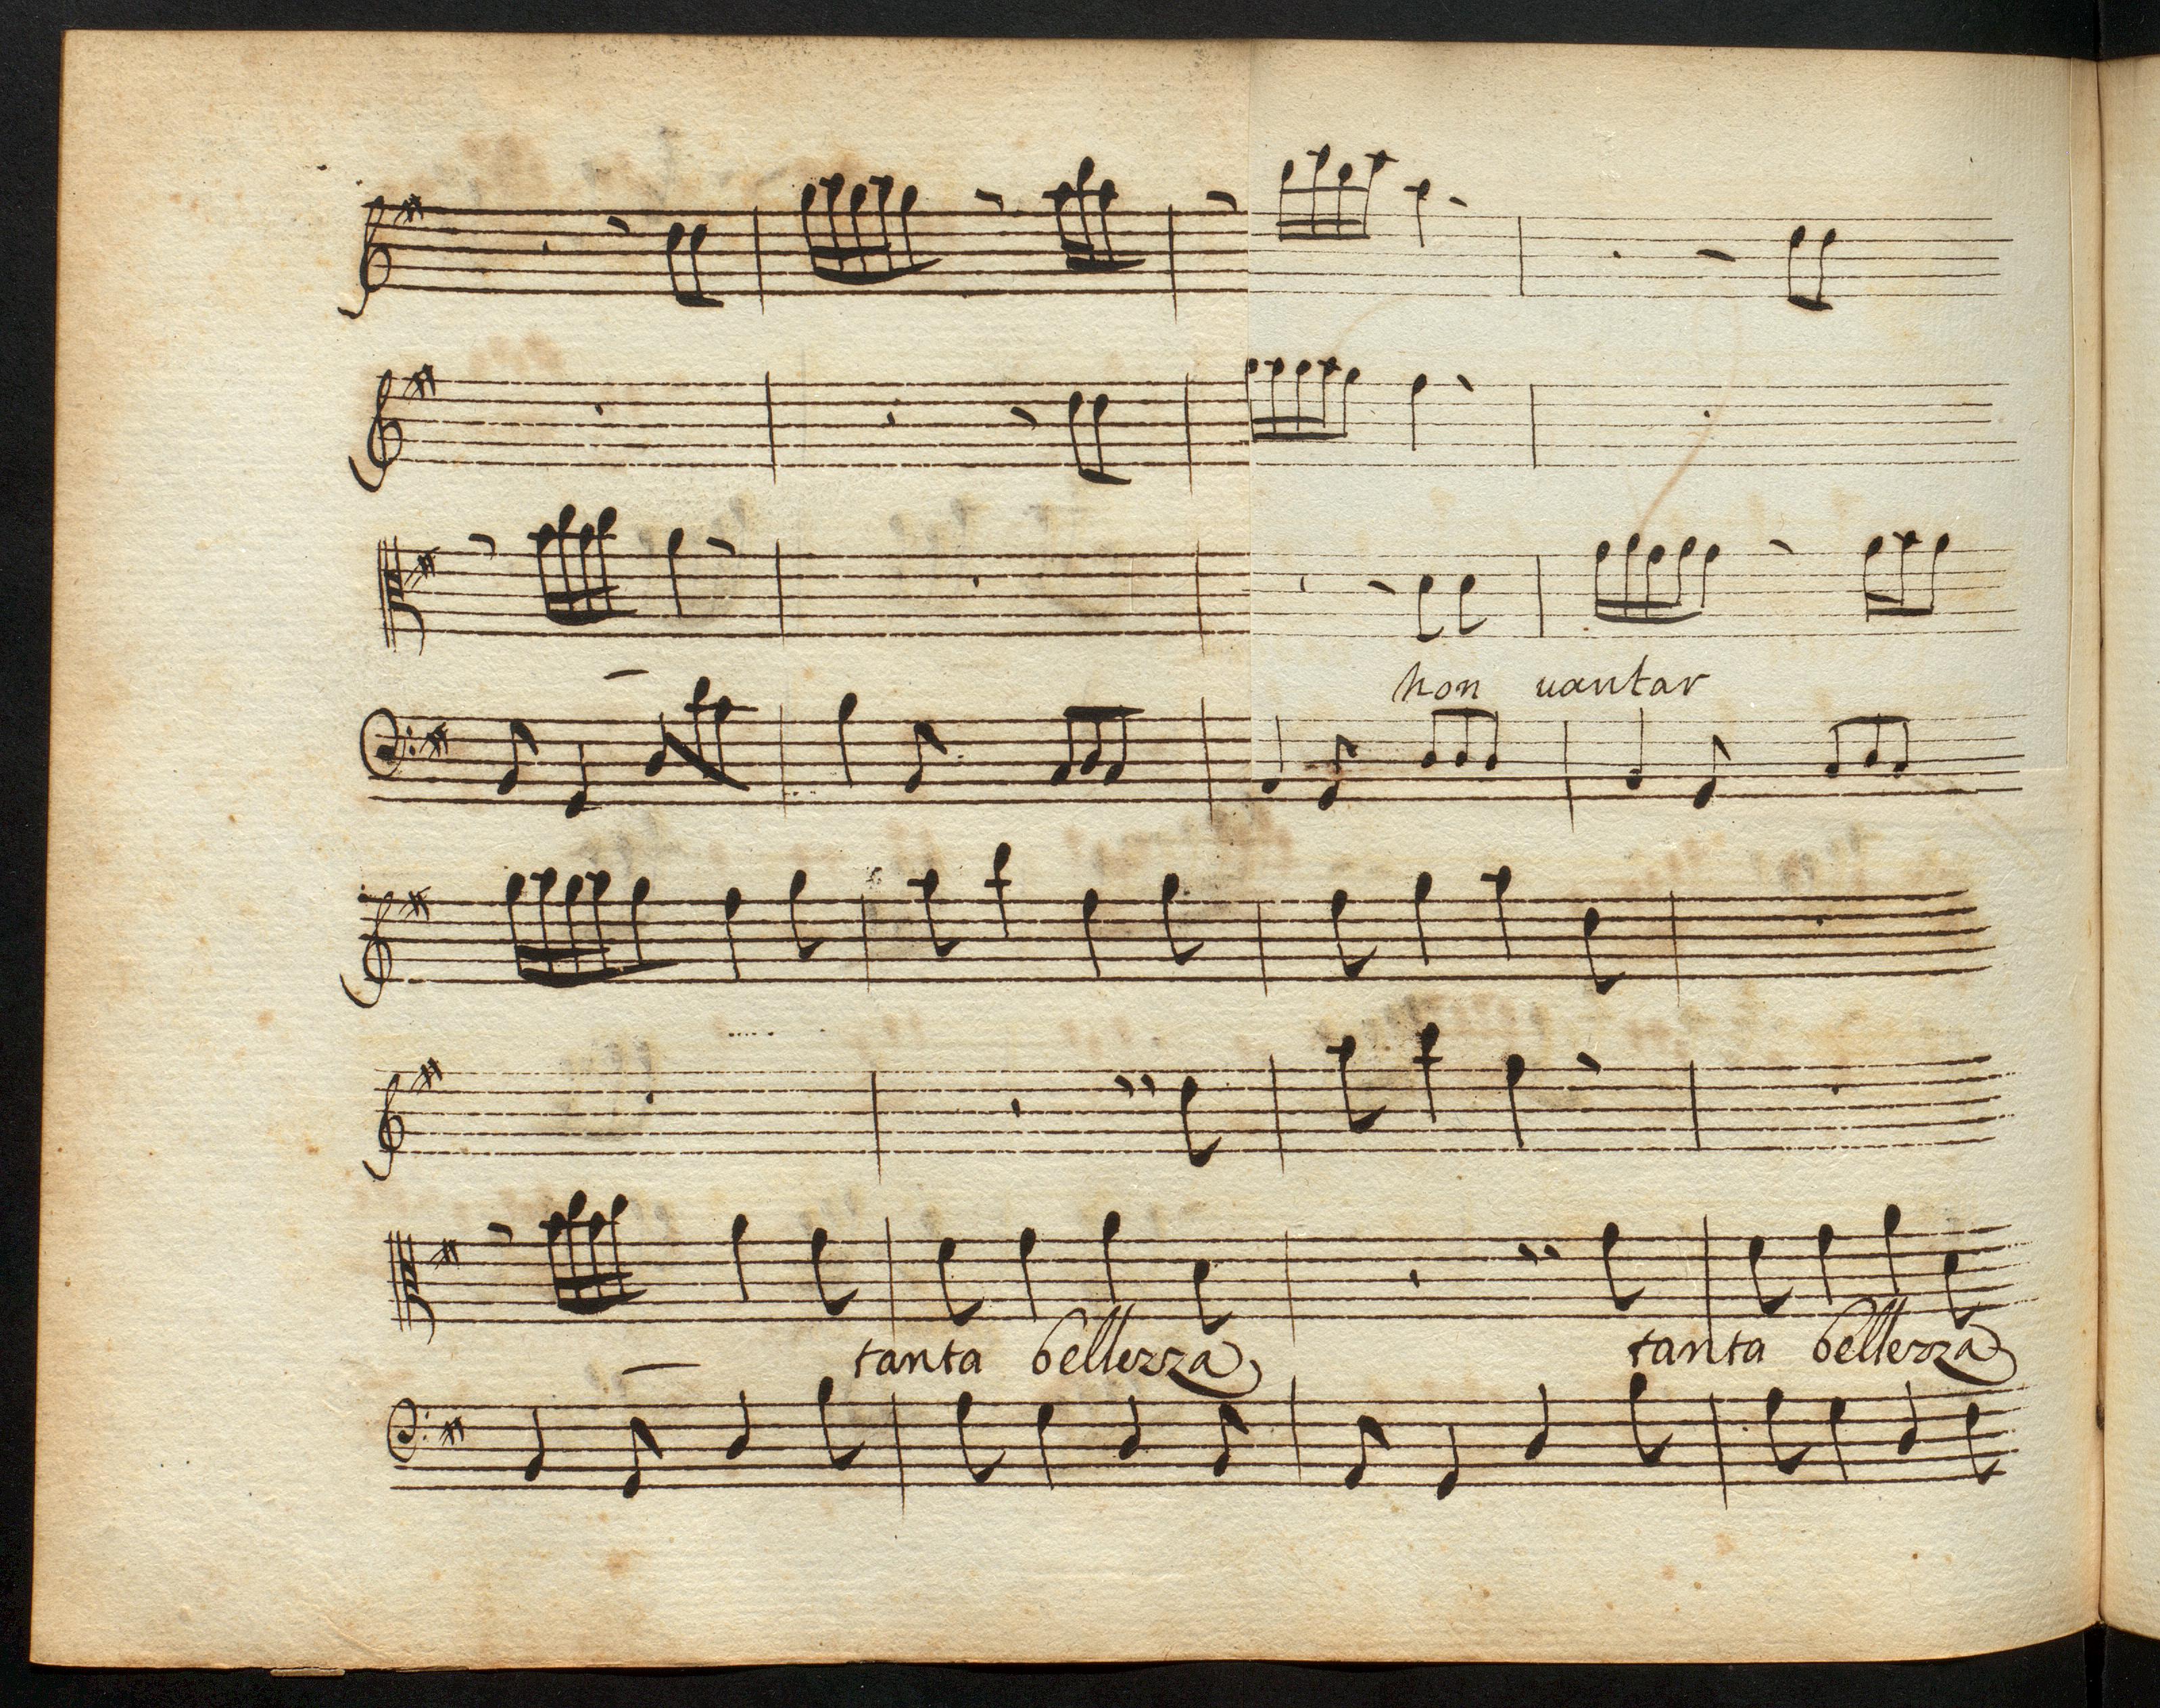 non vantar
tanta bellezza tanta bellezza